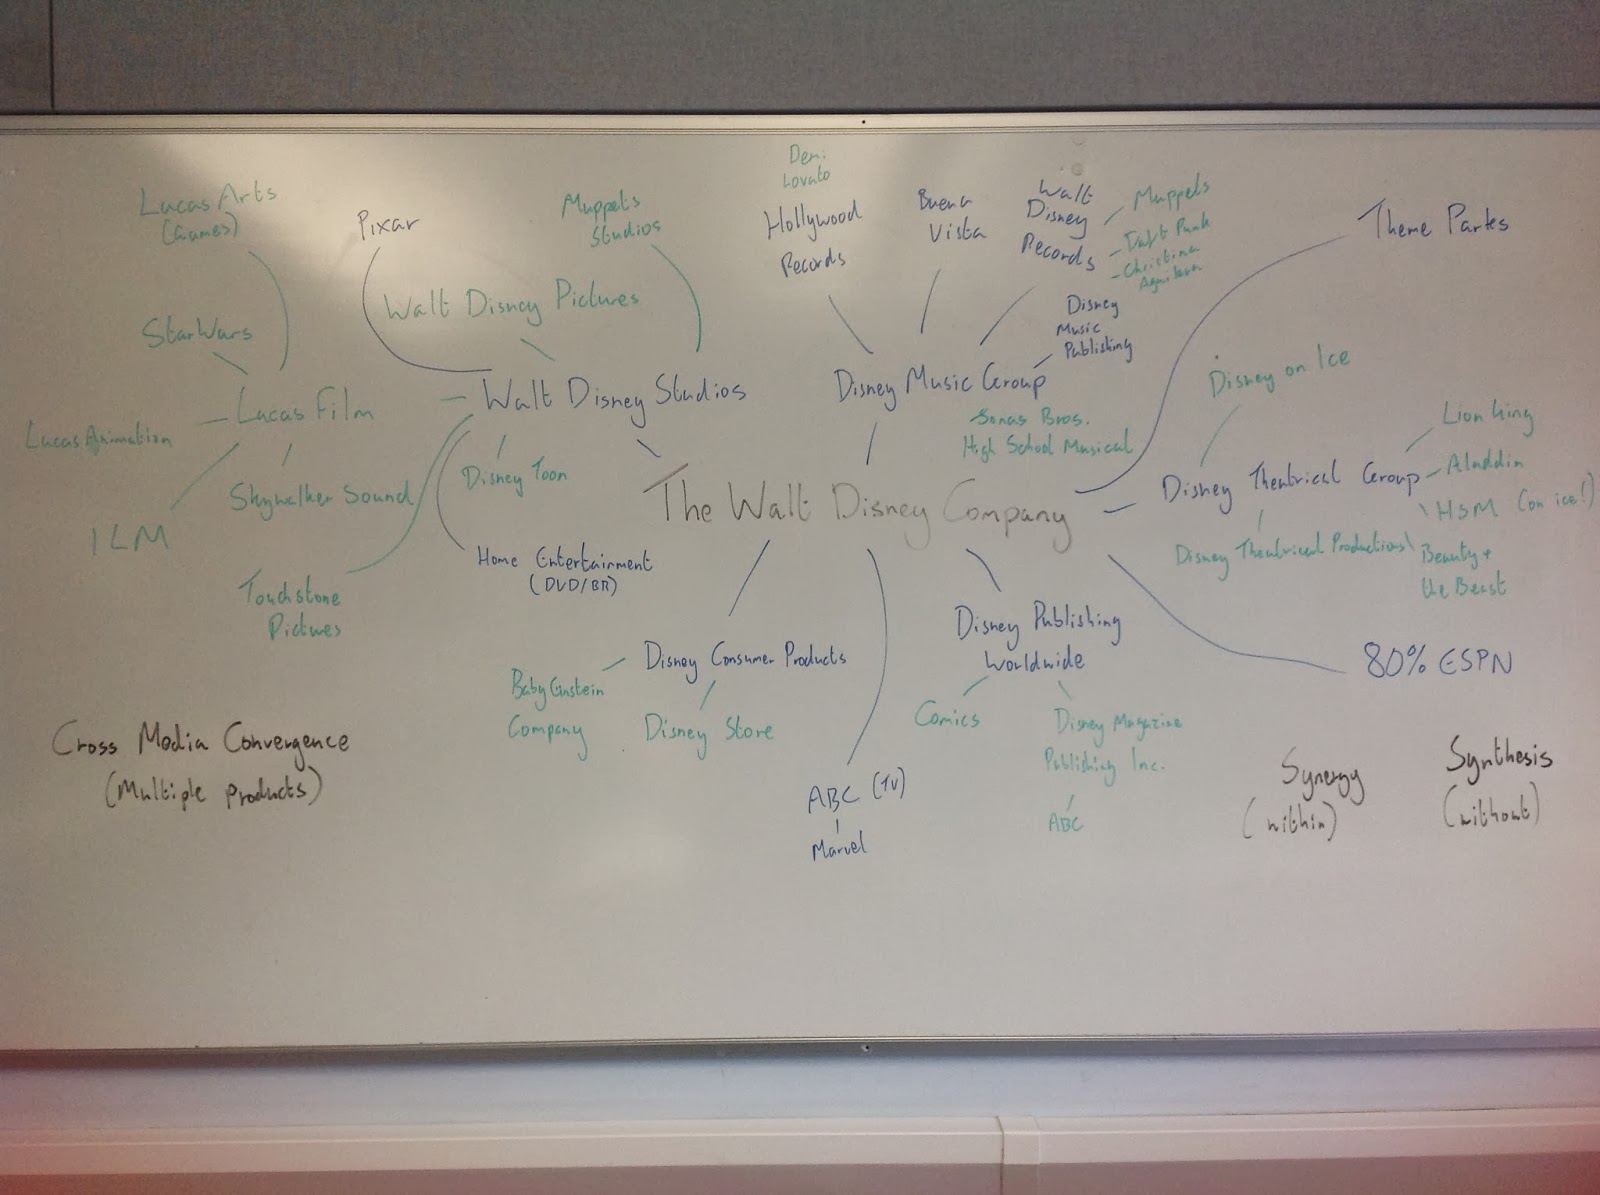 Lucas Arts
(Games)
Pixar
Muppets
Studios
Walt Disney Pictures
StarWars
Lucas Film
Lucas Animation
Skywalker Sound
ILM
Touchstone
Pictures
Walt Disney Studios
Disney Toon
Home Entertainment
(DVD/BR)
Demi
Lovato
Hollywood
Records
Buena
Vista
Walt
Disney
Records
Muppets
Daft Punk
Christina
Aguilera
Disney
Music
Publishing
Disney Music Group
Jonas Bros.
High School Musical
The Walt Disney Company
Theme Parks
Disney on Ice
Disney Theatrical Group
Lion King
Aladdin
HSM (on ice!)
Beauty +
the Beast
Disney Theatrical Productions
80% ESPN
Disney Consumer Products
Baby Einstein
Company
Disney Store
ABC (TV)
Marvel
Disney Publishing
Worldwide
Comics
Disney Magazine
Publishing Inc.
ABC
Cross Media Convergence
(Multiple products)
Synergy
(within)
Synthesis
(without)